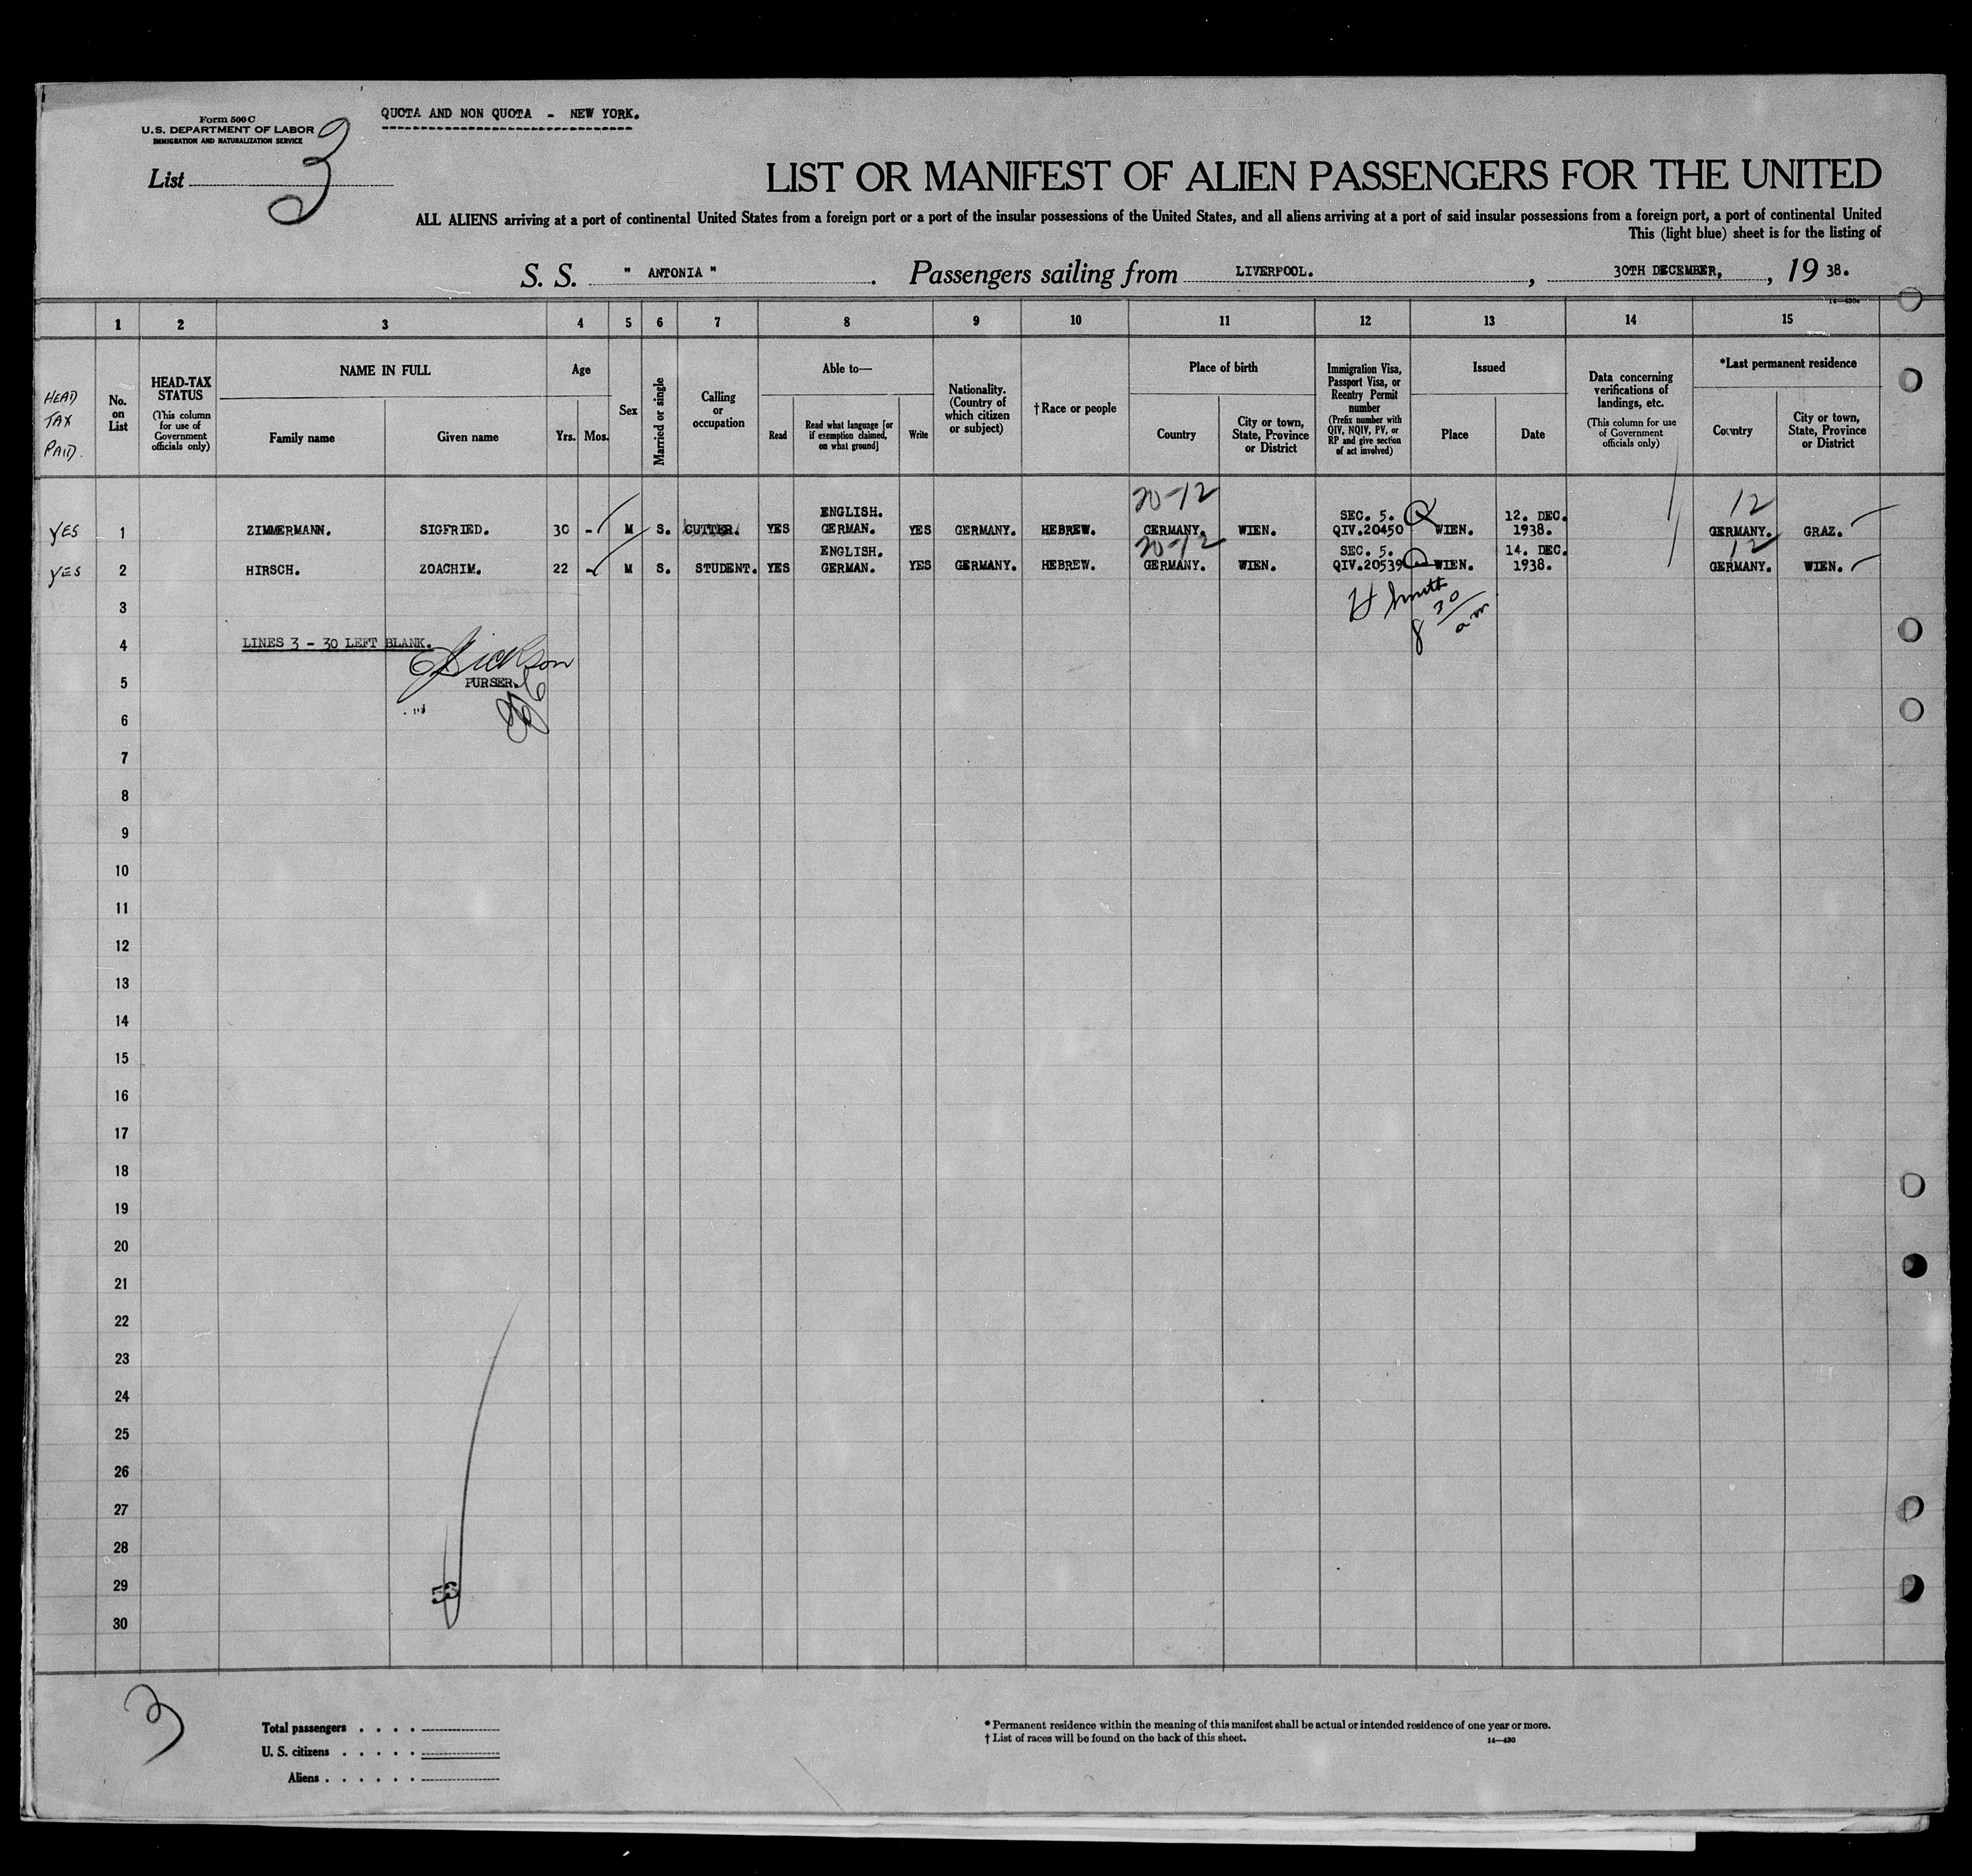 QUOTA AND NON QUOTA - NEW YORK.
Form 500 C
U.S. DEPARTMENT OF LABOR
IMMIGRATION AND NATURALIZATION SERVICE
List 3
LIST OR MANIFEST OF ALIEN PASSENGERS FOR THE UNITED
ALL ALIENS arriving at a port of continental United States from a foreign port or a port of the insular possessions of the United States, and all aliens arriving at a port of said insular possessions from a foreign port, a port of continental United
This (light blue) sheet is for the listing of
S. S. " ANTONIA ". Passengers sailing from LIVERPOOL., 30TH DECEMBER, , 19 38.
1 2 3 4 5 6 7 8 9 10 11 12 13 14 15
HEAD TAX PAID.
No. on List
HEAD-TAX STATUS (This column for use of Government officials only)
NAME IN FULL
Family name
Given name
Age
Yrs. Mos.
Sex
Married or single
Calling or occupation
Able to—
Read
Read what language [or if exemption claimed, on what ground]
Write
Nationality. (Country of which citizen or subject)
† Race or people
Place of birth
Country
City or town, State, Province or District
Immigration Visa, Passport Visa, or Reentry Permit number (Prefix number with QIV, NQIV, PV, or RP and give section of act involved)
Issued
Place
Date
Data concerning verifications of landings, etc. (This column for use of Government officials only)
*Last permanent residence
Country
City or town, State, Province or District
20-12 12
ENGLISH. SEC. 5. Q 12. DEC.
YES 1 ZIMMERMANN. SIGFRIED. 30 - M S. CUTTER. YES GERMAN. YES GERMANY. HEBREW. GERMANY. WIEN. QIV.20450 WIEN. 1938. GERMANY. GRAZ.
20-12 12
ENGLISH. SEC. 5. 14. DEC.
YES 2 HIRSCH. ZOACHIM. 22 - M S. STUDENT. YES GERMAN. YES GERMANY. HEBREW. GERMANY. WIEN. QIV.20539 Q WIEN. 1938. GERMANY. WIEN.
H Smith
8 30 am
3
4 LINES 3 - 30 LEFT BLANK.
5 PURSER.
6
7
8
9
10
11
12
13
14
15
16
17
18
19
20
21
22
23
24
25
26
27
28
29
53
30
3
Total passengers . . . .
U. S. citizens . . . . .
Aliens . . . . . .
* Permanent residence within the meaning of this manifest shall be actual or intended residence of one year or more.
† List of races will be found on the back of this sheet.
14—430